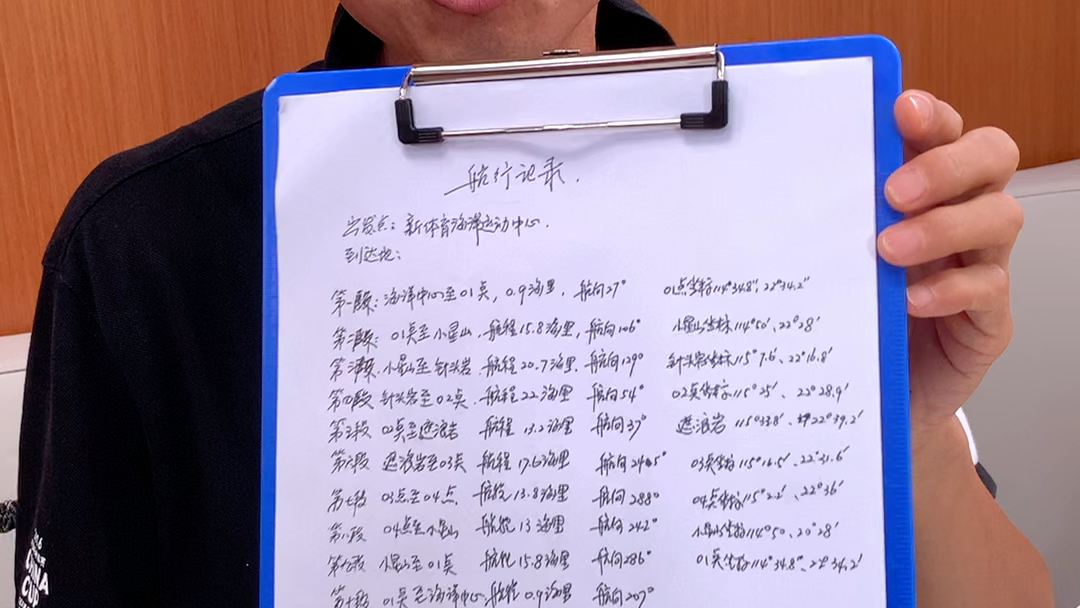 航行记录.
出发点：新体育海洋运动中心.
到达地：
第一段：海洋中心至01点，0.9海里，航向27° 01点坐标114°34.8'，22°34.2'
第二段：01点至小星山，航程15.8海里，航向106° 小星山坐标114°50'、22°28'
第三段 小星山至针头岩，航程20.7海里，航向129° 针头岩坐标115°7.6'、22°16.8'
第四段 针头岩至02点，航程22海里 航向54° 02点坐标115°25'、22°28.9'
第五段 02点至遮浪岩 航程13.2海里 航向37° 遮浪岩 115°33.8' 22°39.2'
第六段 遮浪岩至03点 航程17.6海里 航向245° 03点坐标115°16.5'、22°31.6'
第七段 03点至04点 航程13.8海里 航向288° 04点坐标115°2.2'、22°36'
第八段 04点至小星山 航程13海里 航向242° 小星山坐标114°50、20°28'
第九段 小星山至01点 航程15.8海里 航向286° 01点坐标114°34.8'、22°34.2'
第十段 01点至海洋中心，航程0.9海里 航向207°
CHINA
CUP